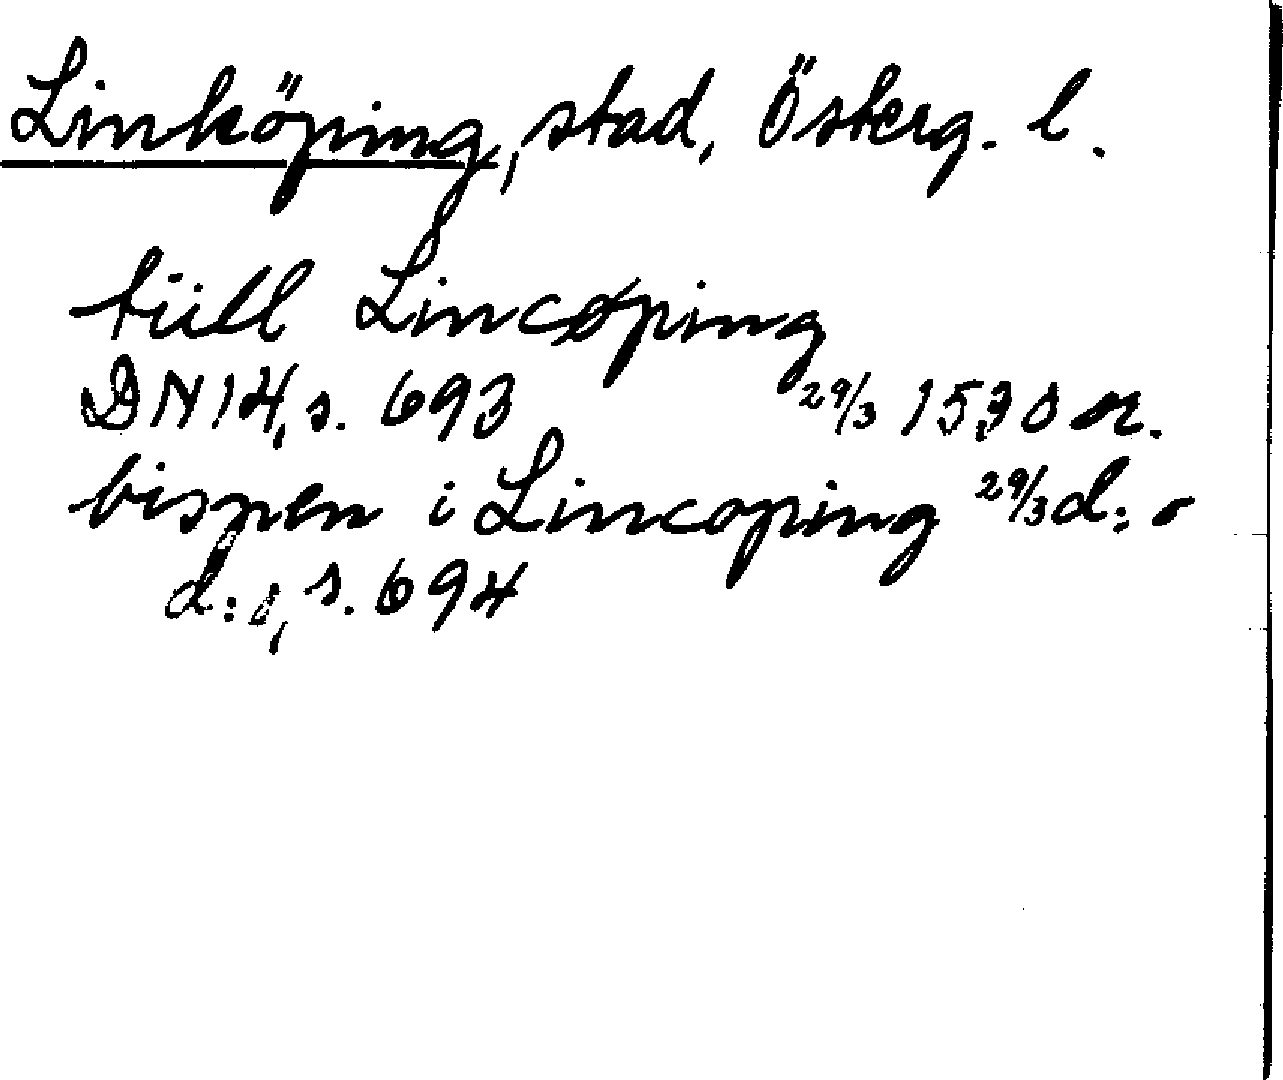 Linköping, stad, Österg. l.
tiill Lincøping
DN 14, s. 693 29/3 1530 or.
bispen i Lincoping 29/3 d:o
d:o, s. 694